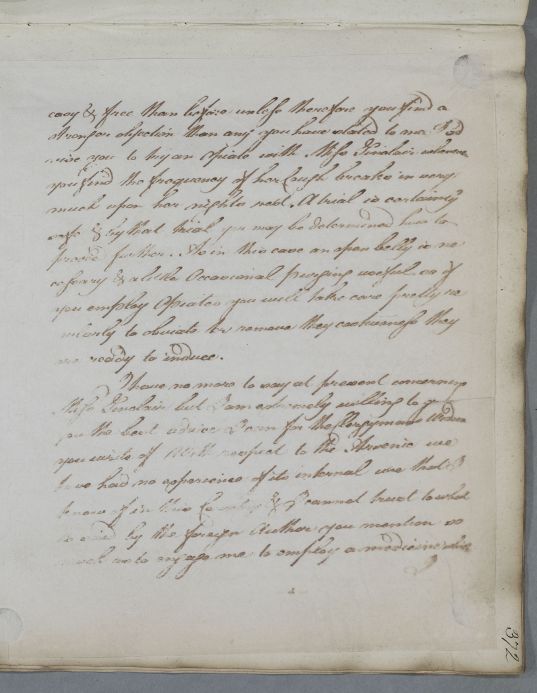 easy & free than before unless therefore you find a
stronger objection than any you have stated to me I ad
vise you to try an Opiate with Miss Sinclair whenever
you find the frequency of her Cough breaks in very
much upon her nights rest. A trial is certainly
safe & by that trial you may be determined how to
proceed further. As in this case an open belly is ne
cessary & a little Occasional purging useful so if
you employ Opiates you will take care pretty re
gularly to obviate or remove they costiveness they
are ready to induce.
I have no more to say at present concerning
Miss Sinclair but I am extremely willing to give
you the best advice I can for the Clergymans Widow
you write of With respect to the Arsenic we
have had no experience of its internal use that I
know of in this Country & I cannot trust to what
is said by the foreign Author you mention so
much as to engage me to employ a medicine which
372